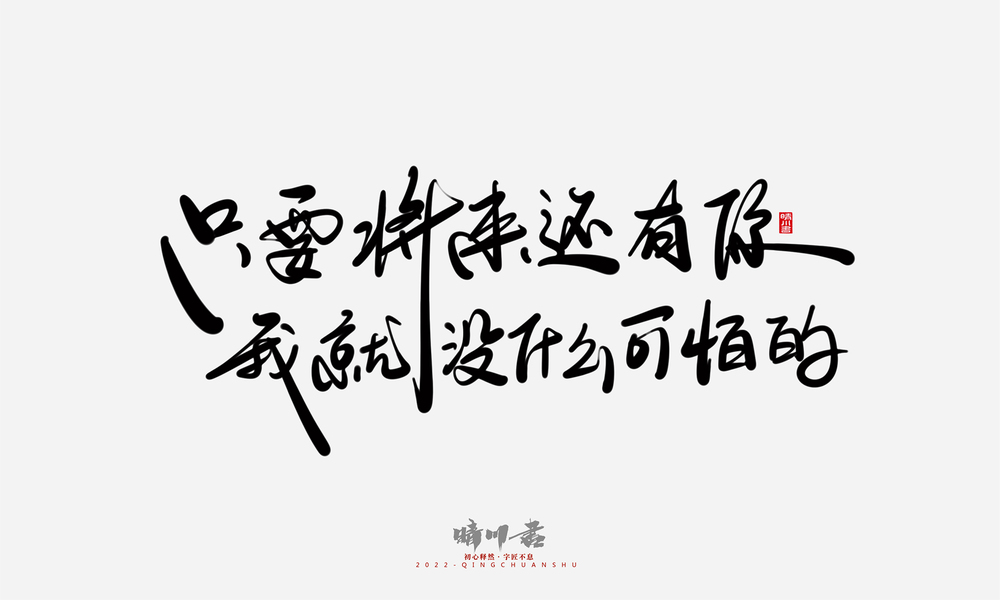 只要将来还有你
晴川書
我就没什么可怕的
晴川書
初心释然·字匠不息
2022-QINGCHUANSHU